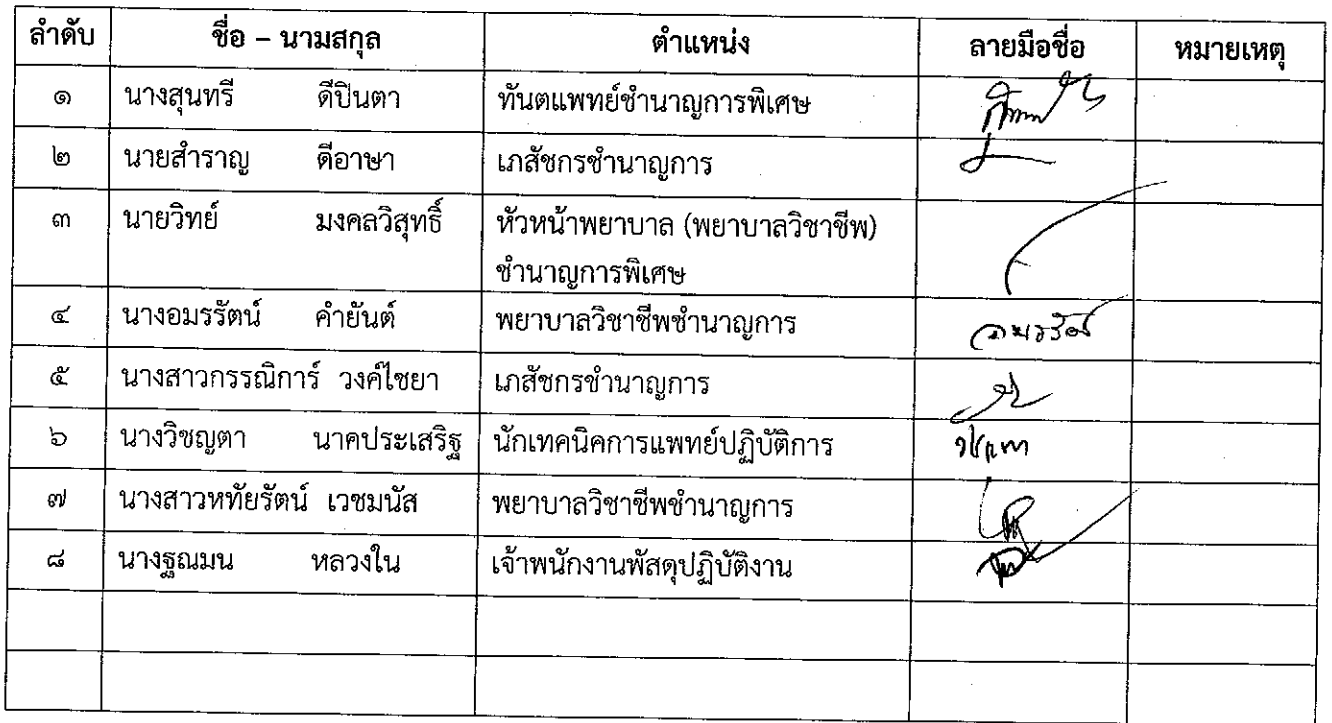 ลำดับ ชื่อ – นามสกุล ตำแหน่ง ลายมือชื่อ หมายเหตุ
๑ นางสุนทรี ดีปินตา ทันตแพทย์ชำนาญการพิเศษ
๒ นายสำราญ ดีอาษา เภสัชกรชำนาญการ
๓ นายวิทย์ มงคลวิสุทธิ์ หัวหน้าพยาบาล (พยาบาลวิชาชีพ)
ชำนาญการพิเศษ
๔ นางอมรรัตน์ คำยันต์ พยาบาลวิชาชีพชำนาญการ อมรรัตน์
๕ นางสาวกรรณิการ์ วงค์ไชยา เภสัชกรชำนาญการ
๖ นางวิชญตา นาคประเสริฐ นักเทคนิคการแพทย์ปฏิบัติการ
๗ นางสาวหทัยรัตน์ เวชมนัส พยาบาลวิชาชีพชำนาญการ
๘ นางฐณมน หลวงใน เจ้าพนักงานพัสดุปฏิบัติงาน